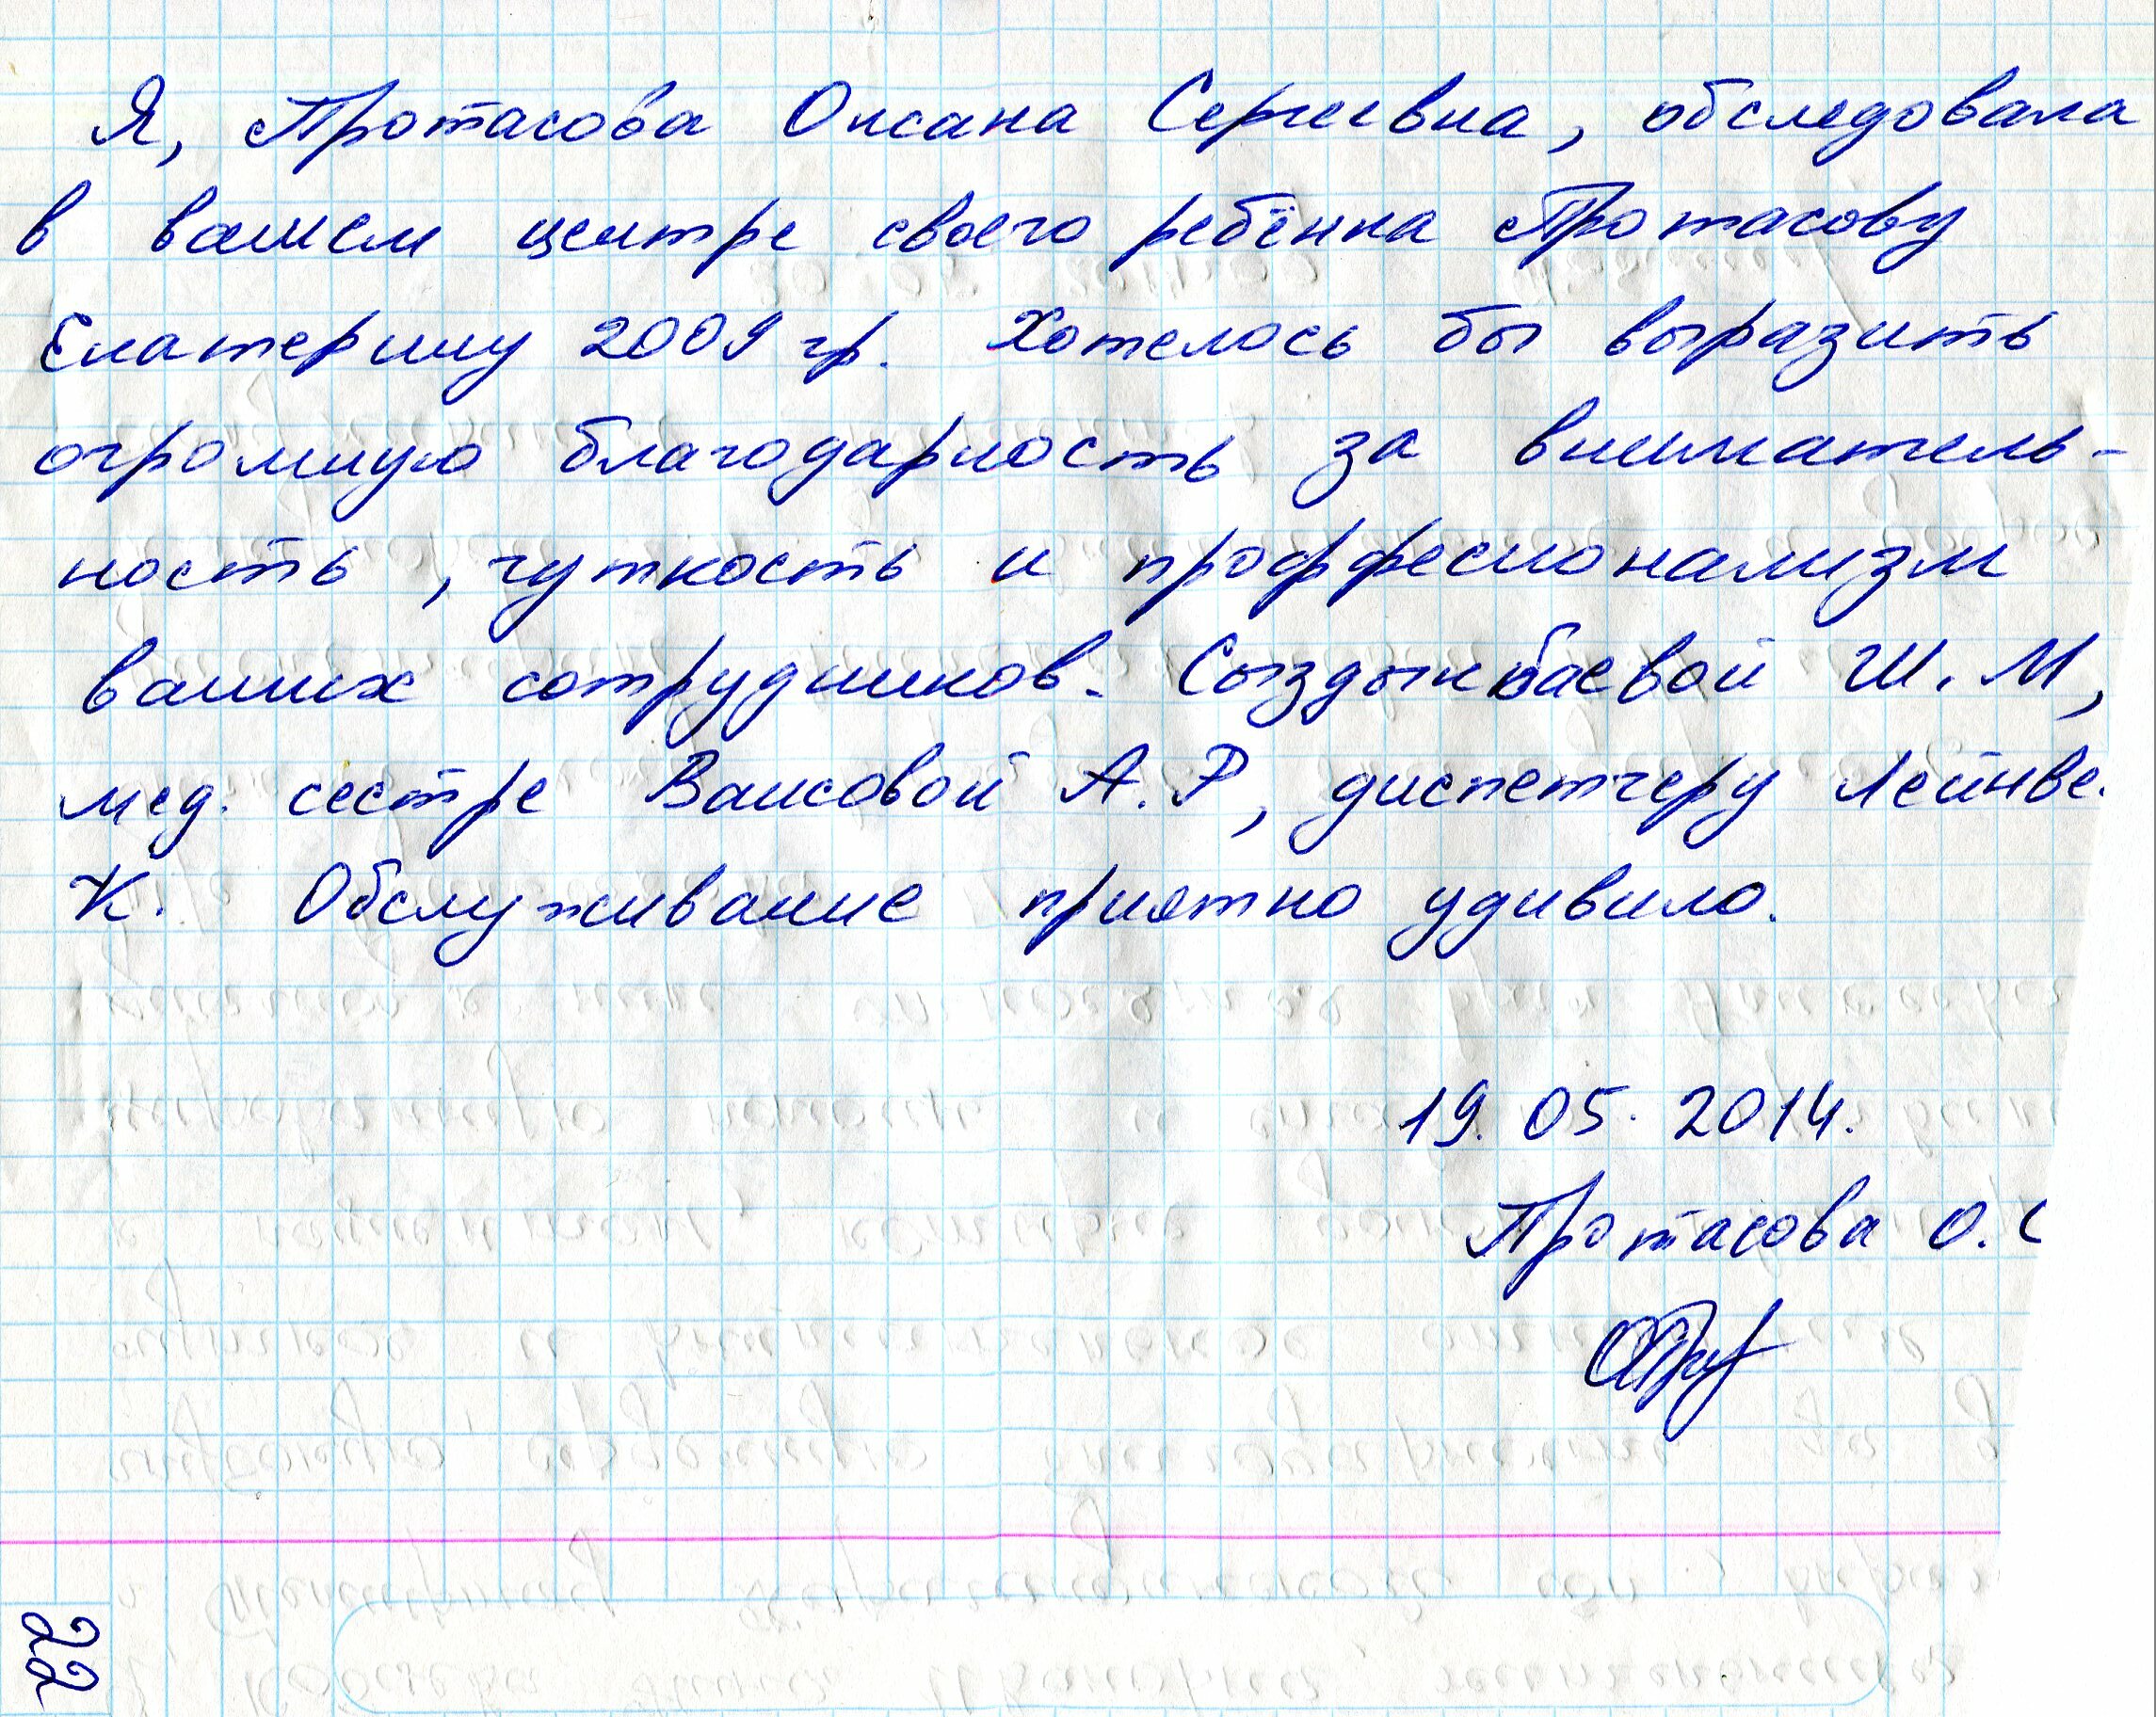 Я, Протасова Оксана Сергеевна, обследовала
в вашем центре своего ребёнка Протасову
Екатерину 2009 гр. Хотелось бы выразить
огромную благодарность за вниматель-
ность, чуткость и проффесионализм
ваших сотрудников. Сыздыкбаевой Ш. М,
мед. сестре Ваисовой А. Р, диспетчеру Лейнве.
К. Обслуживание приятно удивило.
19. 05. 2014.
Протасова О. С
22